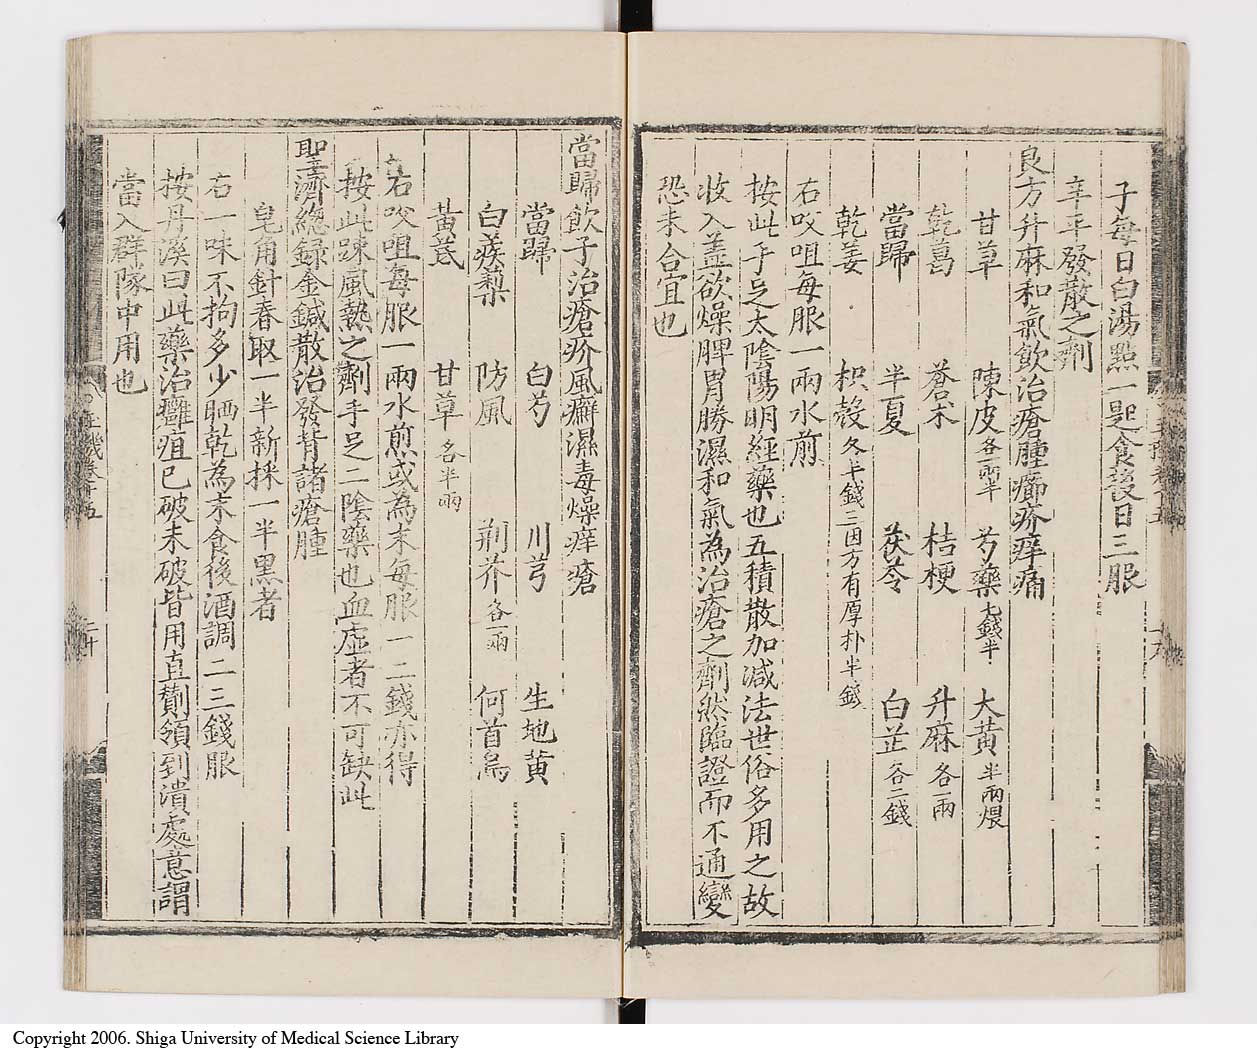 子每日白湯點一匙食後日三服
辛平發散之劑
良方升麻和氣飲治瘡腫癤疥痒痛
甘草 陳皮各一兩半 芍藥七錢半 大黃半兩煨
乾葛 蒼朮 桔梗 升麻各一兩
當歸 半夏 茯苓 白芷各二錢
乾姜 枳殼各半錢三因方有厚朴半錢
右㕮咀每服一兩水煎
按此手足太陰陽明經藥也五積散加减法世俗多用之故
收入盖欲燥脾胃勝濕和氣為治瘡之劑然臨證而不通變
恐未合宜也
當歸飲子治瘡疥風癬濕毒燥痒瘡
當歸 白芍 川芎 生地黄
白蒺䔧 防風 荊芥各一兩 何首烏
黃芪 甘草各半兩
右㕮咀每服一兩水煎或為末每服一二錢亦得
按此疎風熱之劑手足二陰藥也血虛者不可缺此
聖濟總録金鍼散治發背諸瘡腫
皂角針春取一半新採一半黑者
右一味不拘多少晒乾為末食後酒調二三錢服
按丹溪曰此藥治癰疽已破未破皆用直劗領到潰處意謂
當入群隊中用也
二十
Copyright 2006. Shiga University of Medical Science Library